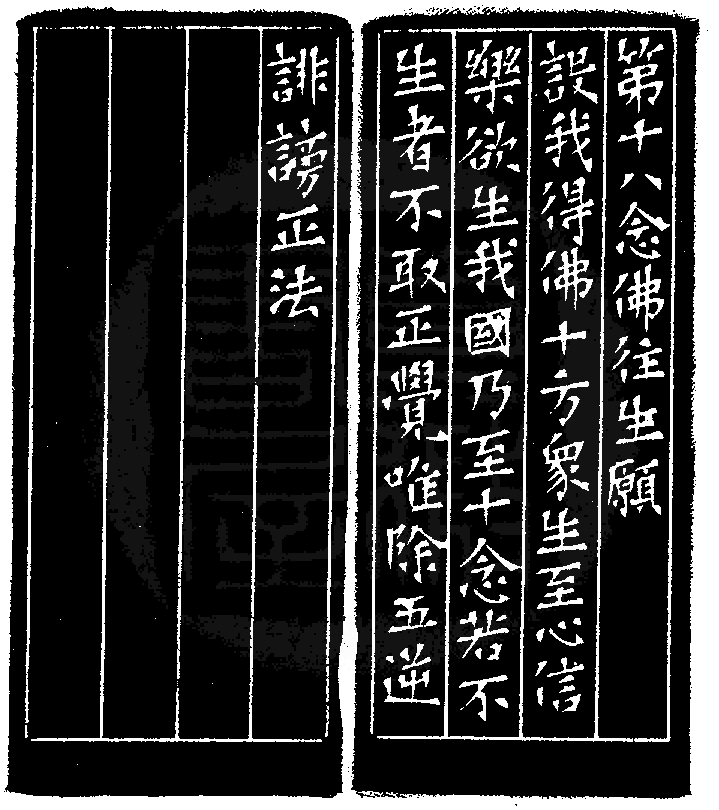 第十八念佛往生願
設我得佛十方衆生至心信
樂欲生我國乃至十念若不
生者不取正覺唯除五逆
誹謗正法